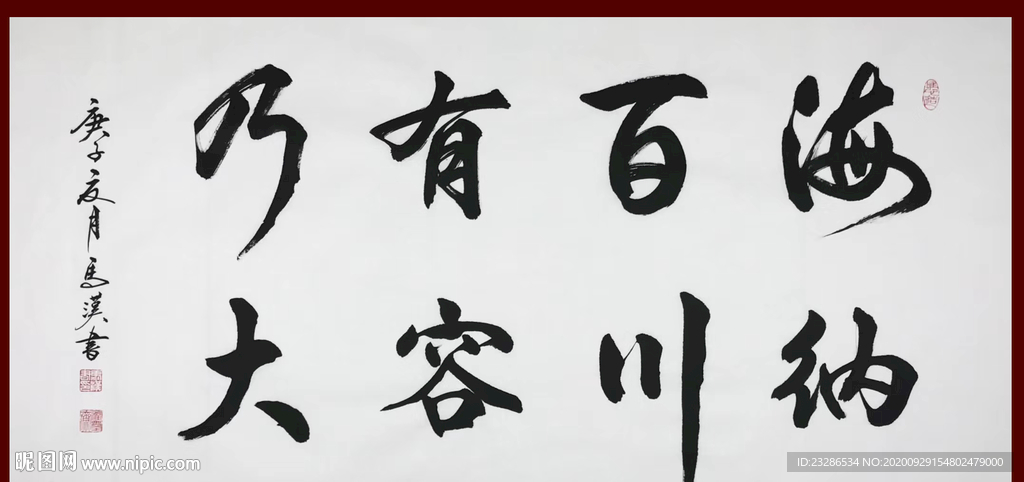 海纳
百川
有容
乃大
庚子夏月馬漢書
昵图网 www.nipic.com
ID:23286534 NO:20200929154802479000